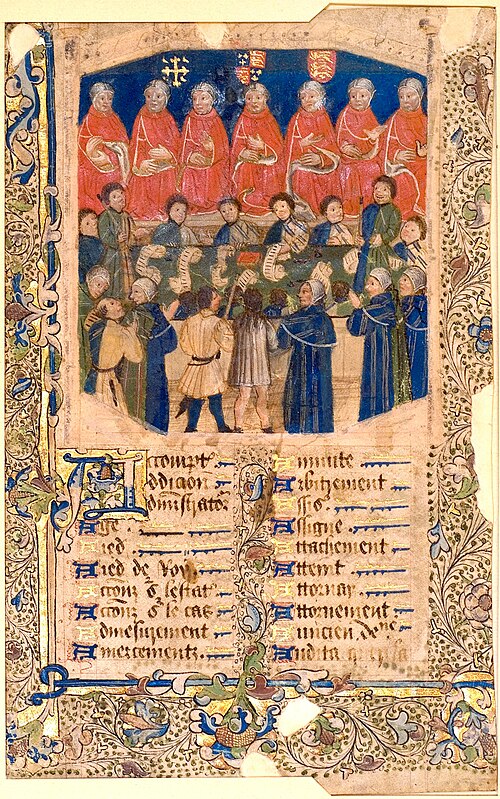 Accompt
ddicion
dministrator
Age
Aied
Aied de Roy
Accion lestat
Accion le cas
Admesurement
Amercement
Annuite
Arbitrement
Assis
Assigne
Attachement
Atteint
Attornay
Attornement
Auncien
Audita